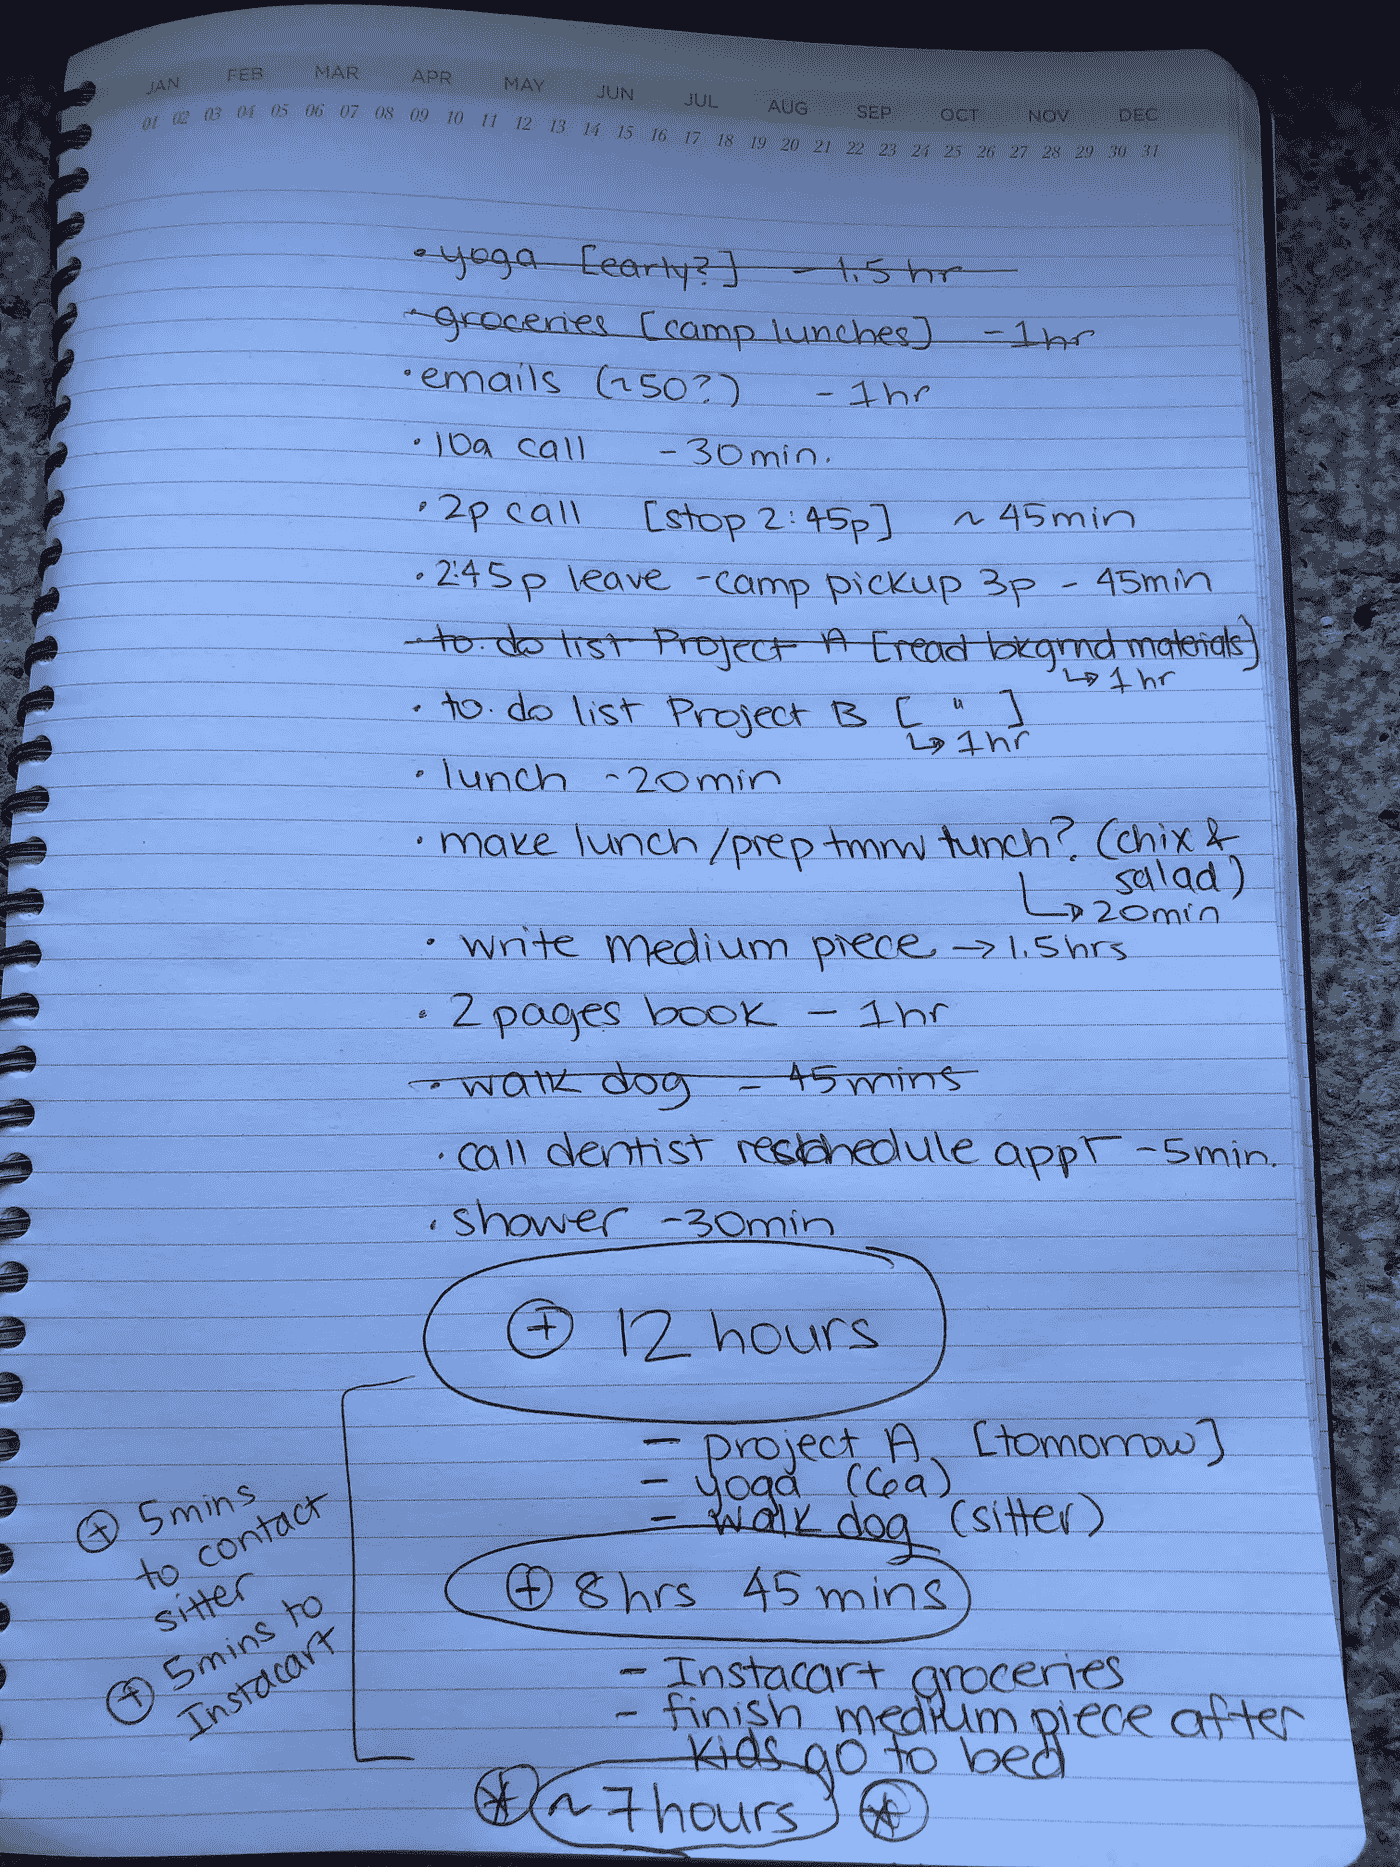 JAN FEB MAR APR MAY JUN JUL AUG SEP OCT NOV DEC
01 02 03 04 05 06 07 08 09 10 11 12 13 14 15 16 17 18 19 20 21 22 23 24 25 26 27 28 29 30 31
• yoga [early?] - 1.5 hr
- groceries [camp lunches] - 1hr
• emails (~50?) - 1hr
• 10a call - 30min.
• 2p call [stop 2:45p] ~ 45min
• 2:45p leave - camp pickup 3p - 45min
- to·do list Project A [read bkgrnd materials]
↳ 1hr
• to·do list Project B [ " ]
↳ 1hr
• lunch - 20min
• make lunch/prep tmrw lunch? (chix &
salad)
↳ 20min
• write medium piece → 1.5hrs
• 2 pages book - 1hr
• walk dog - 45mins
• call dentist reschedule appt - 5min.
• shower - 30min
+ 12 hours
- project A [tomorrow]
- yoga (6a)
- walk dog (sitter)
+ 8hrs 45mins
- Instacart groceries
- finish medium piece after
kids go to bed
* ~7hours *
+ 5mins
to contact
sitter
+ 5mins to
Instacart